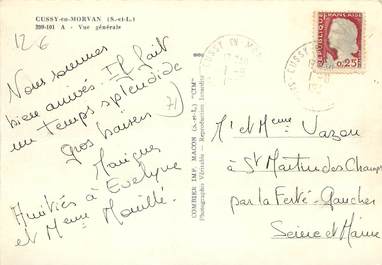 CUSSY-en-MORVAN (S.-et-L.)
399-101 A - Vue générale
12 6
Nous sommes
bien arrivés Il fait
un temps splendide
Gros baisers
71
à Evelyne
et Meme
COMBIER IMP. MACON (S.-et-L.) "CIM"
Photographie Véritable - Reproduction Interdite
CUSSY EN MO
REPUBLIQUE FRANÇAISE
0,25F
Mr et Meme Vazon
à St Martin des Champs
par la Ferté-Gaucher
Seine et Marne